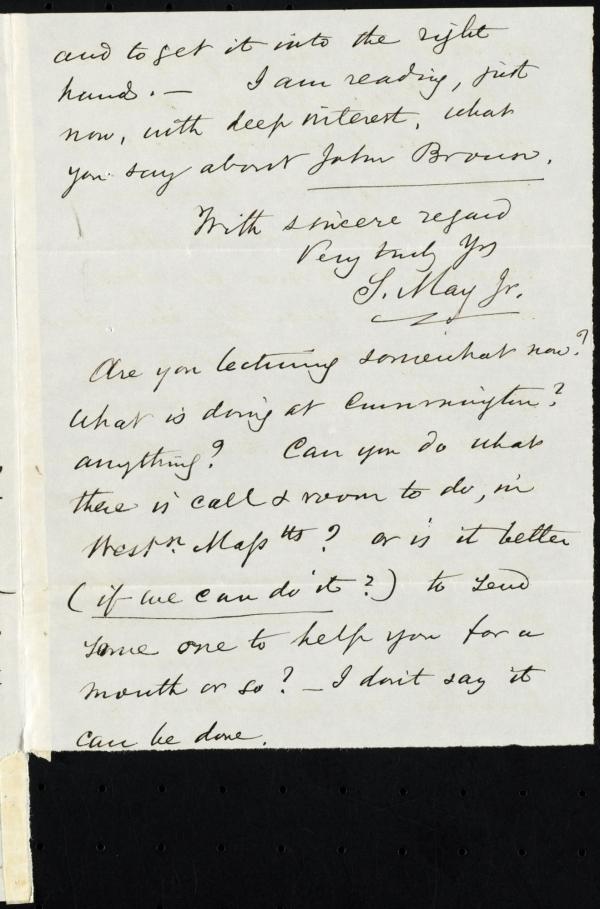 and to get it into the right
hands. — I am reading, just
now, with deep interest, what
you say about John Brown.
With sincere regard
Very truly Yrs
S. May Jr.
Are you lecturing somewhat now?
What is doing at Cummington?
anything? Can you do what
there is call & room to do, in
Westn. Masstts? or is it better
(if we can do it?) to send
some one to help you for a
month or so? — I don't say it
can be done.